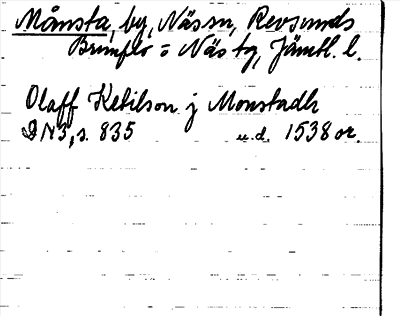 Månsta, by, Näs sn, Revsunds
Brunflo o Näs tg, Jämtl. l.
Olaff Ketilson j Monstadh
DN 3, s. 835 u.d. 1538 or.